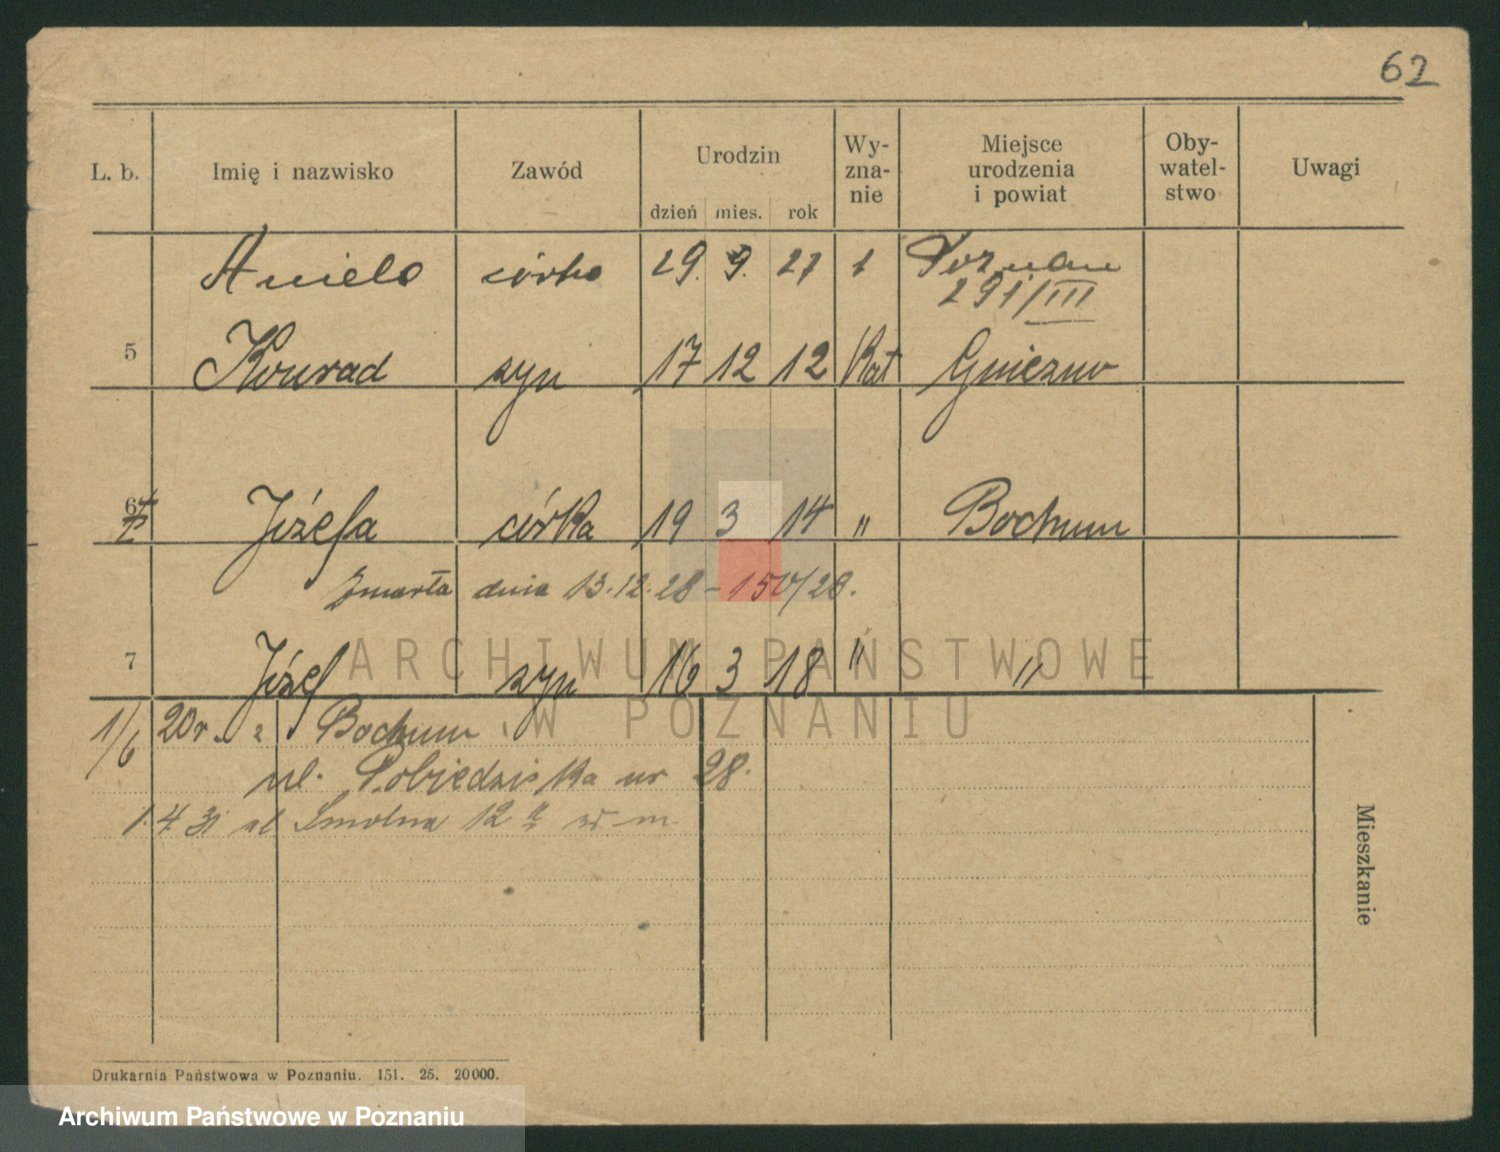 62
L. b. Imię i nazwisko Zawód Urodzin dzień mies. rok Wy-zna-nie Miejsce urodzenia i powiat Oby-watel-stwo Uwagi
Aniela córka 29. 9. 27 1 Poznań
291/III
5 Konrad syn 17 12 12 Kat Gniezno
6 Józefa córka 19 3 14 " Bochum
Zmarła dnia 13.12.28 - 150/28.
7 Józef syn 16 3 18 " "
ARCHIWUM PAŃSTWOWE
W POZNANIU
1/6 20 r. z Bochum
ul. Pobiedziska nr 28.
1.4 31 ul Smolna 12
Mieszkanie
Drukarnia Państwowa w Poznaniu. 151. 25. 20000.
Archiwum Państwowe w Poznaniu